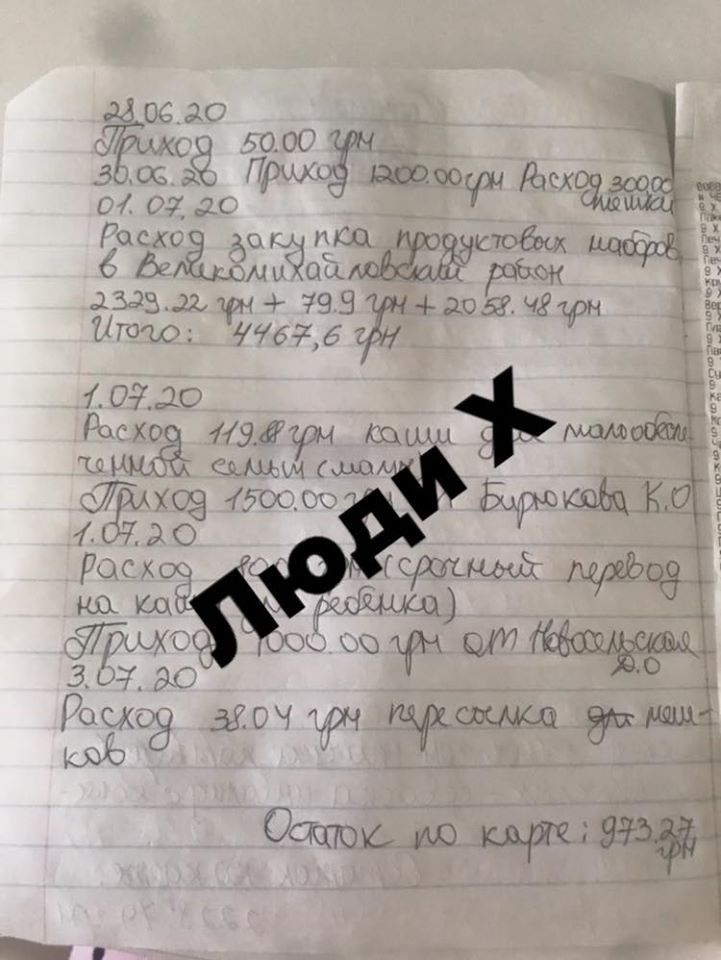 28.06.20
Приход 50.00 грн
30.06.20 Приход 1200.00грн Расход 300.00
мешки
01.07.20
Расход закупка продуктовых наборов
в Великомихайловский район
2329.22 грн + 79.9 грн + 2058.48 грн
Итого: 4467,6 грн
1.07.20
Расход 119.8 грн каши для малообеспе
ченной семьи (мамы
Приход 1500.00 Бирюкова К.О
1.07.20
Расход (срочный перевод
на ребёнка)
Приход 000.00 грн от Новосельская
О.О
3.07.20
Расход 38.04 грн пересылка для меш-
ков
Остаток по карте: 973.27
грн
Люди Х